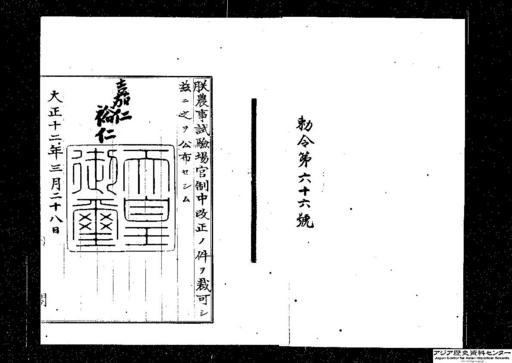 勅令第六十六號
朕農事試驗場官制中改正ノ件ヲ裁可シ
茲ニ之ヲ公布セシム
嘉仁
裕仁
天皇
御璽
大正十二年三月二十八日
アジア歴史資料センター
Japan Center for Asian Historical Records